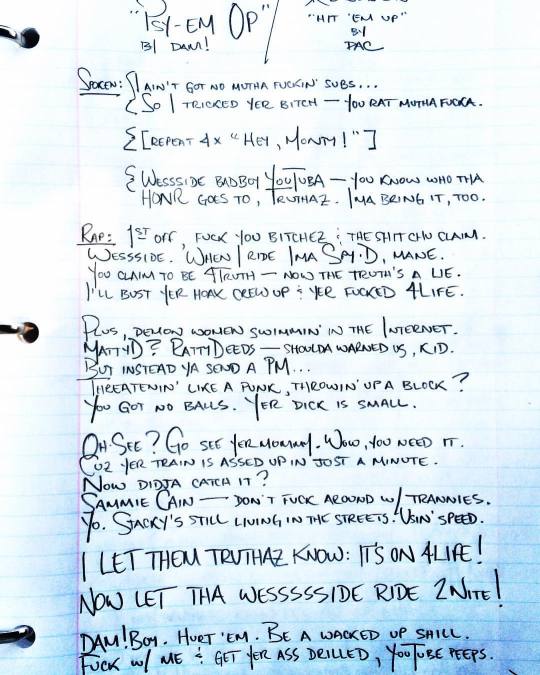 "Psy-em Op"
By Dam!
"Hit 'em up"
by
Pac
Spoken: I ain't got no mutha fuckin' subs...
So I tricked yer bitch — you rat mutha fucka.
[Repeat 4x "Hey, Monty!"]
Wessside badboy YouTuba — you know who tha
Honr goes to, Truthaz. Ima bring it, too.
Rap: 1st off, fuck you bitchez & the shit chu claim.
Wessside. When I ride Ima Spy-D, mane.
You claim to be 4Truth — now the truth's a lie.
I'll bust yer hoax crew up & yer fucked 4Life.
Plus, demon women swimmin' in the Internet.
MattyD? RattyDeeds — shoulda warned us, kid.
But instead ya send a PM...
Threatenin' like a punk, throwin' up a block?
You got no balls. Yer dick is small.
Oh-See? Go see yer mommy. Wow, you need it.
Cuz yer train is assed up in just a minute.
Now didja catch it?
Sammie Cain — don't fuck around w/ trannies.
Yo. Stacky's still living in the streets. Usin' speed.
I let them Truthaz know: it's on 4Life!
Now let tha Wesssssside ride 2Nite!
Dam! Boy. Hurt 'em. Be a wacked up shill.
Fuck w/ me & get yer ass drilled, YouTube peeps.